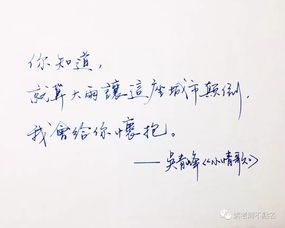 你知道，
就算大雨讓這座城市顛倒，
我會給你懷抱。
——吳青峰《小情歌》